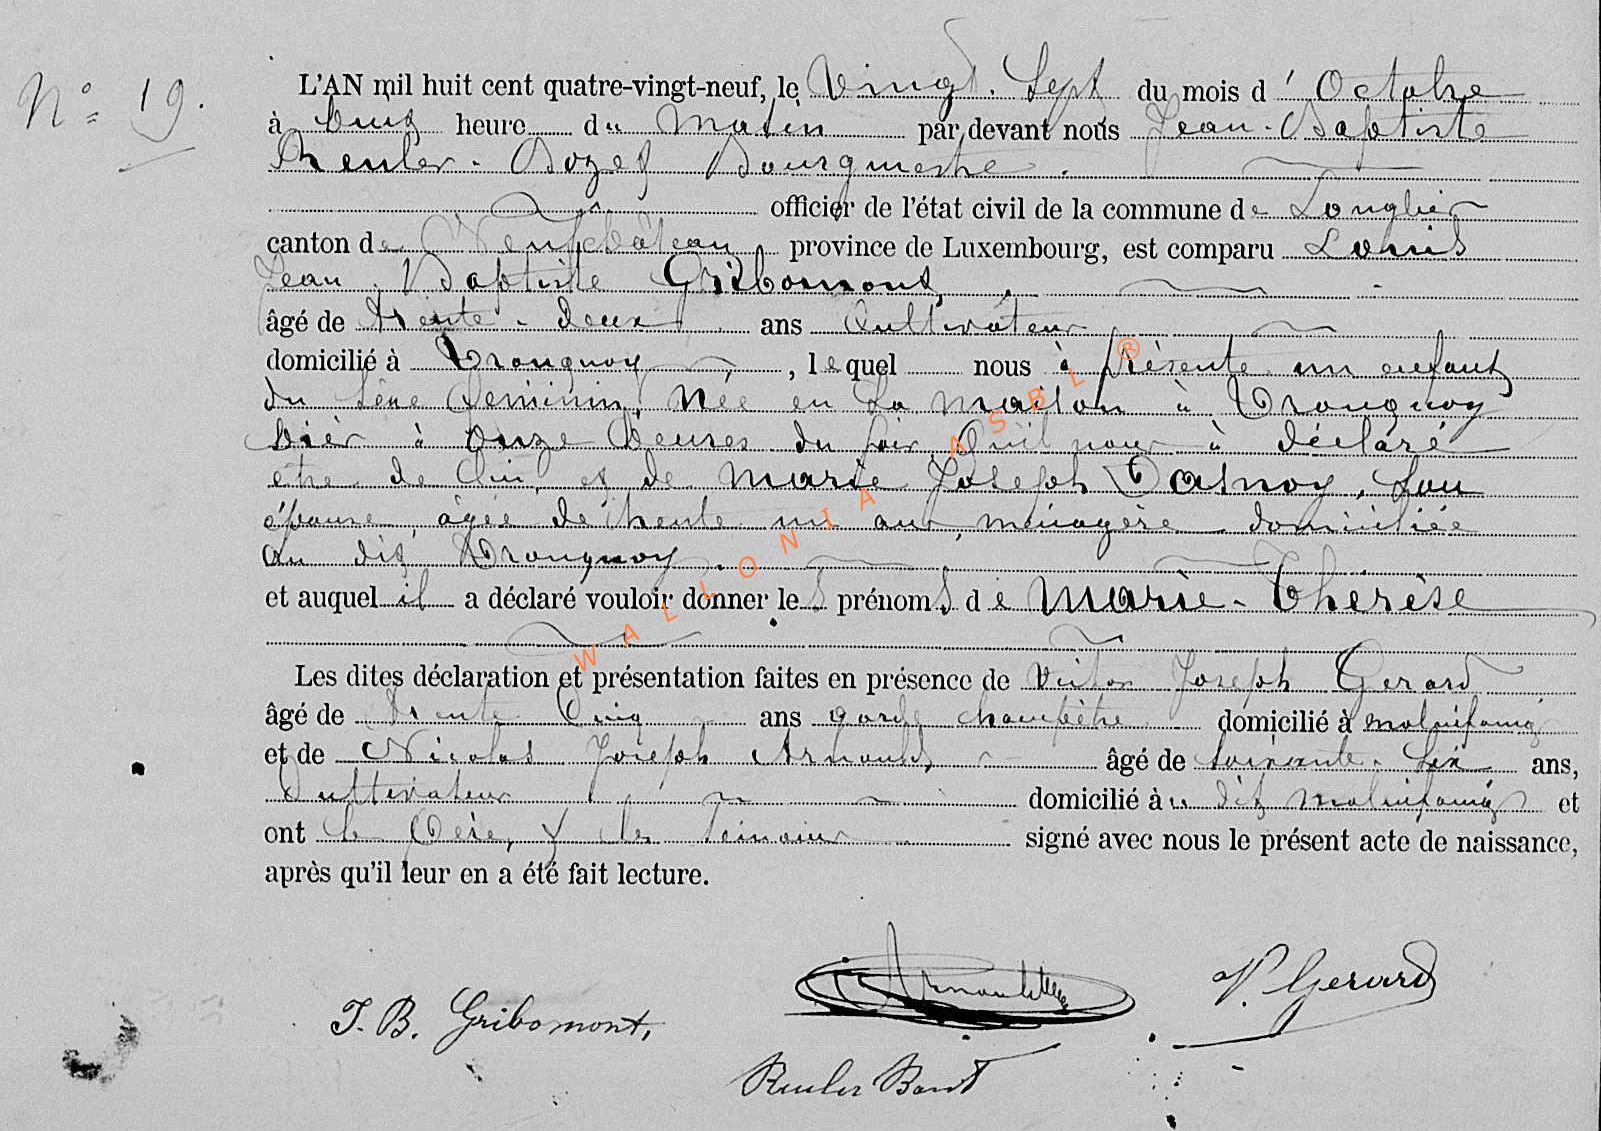 N° 19.
L'AN mil huit cent quatre-vingt-neuf, le Vingt. Sept du mois d' Octobre
à heure du Matin par devant nous Jean-Baptiste
Reuler. Bozet Bourgmestre.
officier de l'état civil de la commune de Longlier
canton de Neufchâteau province de Luxembourg, est comparu Louis
Jean Baptiste Gribomont,
âgé de trente-deux ans Cultivateur
domicilié à Tronquoy, lequel nous à présenté un enfant
du sexe feminin, Née en sa maison à Tronquoy
hier à onze heures du soir. Qu'il nous à déclaré
etre de lui, et de Marie Joseph Dasnoy, son
épouse, agée de trente un ans, ménagère domiciliée
au dit Tronquoy.
et auquel il a déclaré vouloir donner les prénoms de Marie-Thérèse
Les dites déclaration et présentation faites en présence de Victor Joseph Gerard
âgé de trente Cinq ans garde champêtre domicilié à molinfaing
et de Nicolas Joseph Arnould, âgé de soixante-six ans,
Cultivateur domicilié au dit molinfaing et
ont le Père, & les témoins signé avec nous le présent acte de naissance,
après qu'il leur en a été fait lecture.
Arnould V. Gerard
J. B. Gribomont,
Reuler Bozet
WALLONIA ASBL ®